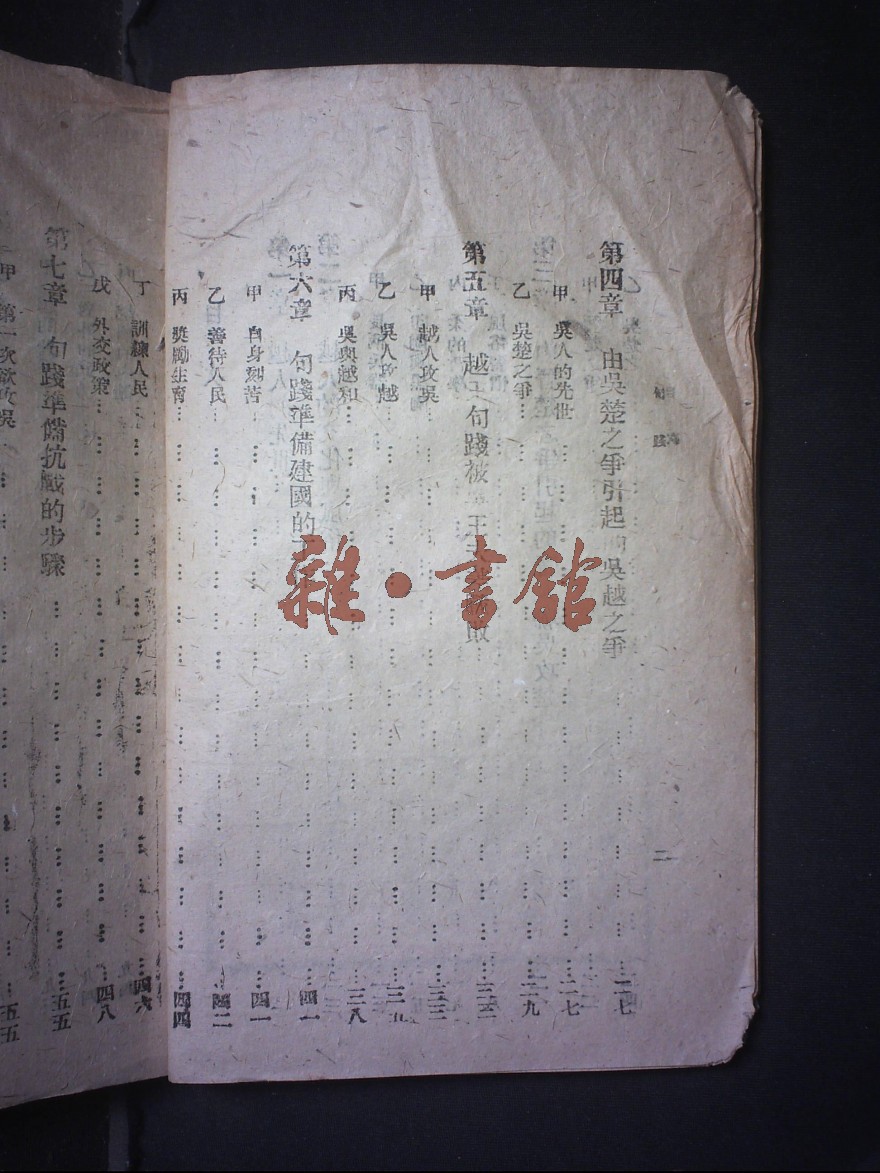 句踐
二
第四章 由吳楚之爭引起 吳越之爭 二七
甲 吳人的先世 二七
乙 吳楚之爭 二九
第五章 越王句踐被 王 敗 三三
甲 越人攻吳 三三
乙 吳人攻越 三五
丙 吳與越和 三八
第六章 句踐準備建國的 四一
甲 自身刻苦 四一
乙 善待人民 四二
丙 獎勵生育 四四
丁 訓練人民 四六
戊 外交政策 四八
第七章 句踐準備抗戰的步驟 五五
甲 第一次欲攻吳 五五
雜·書館